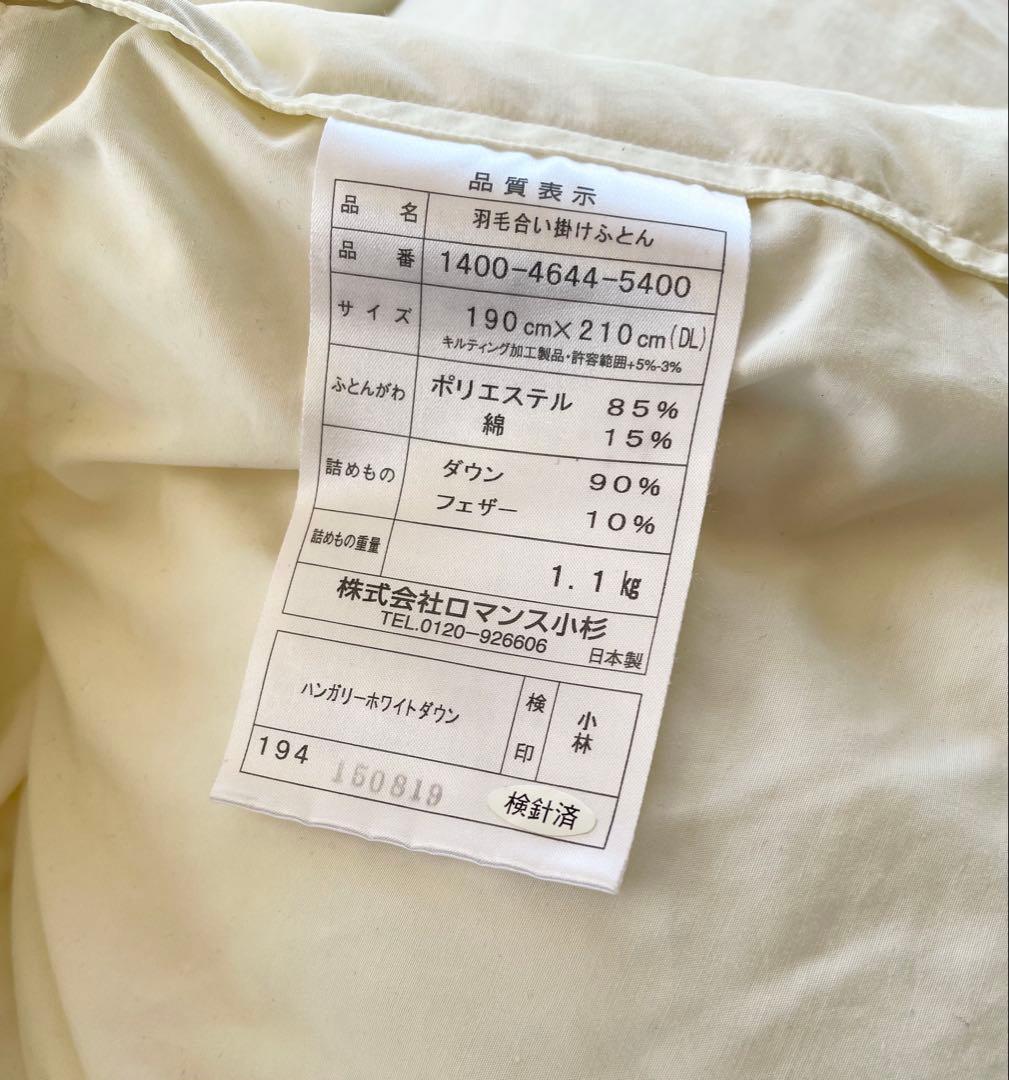 品質表示
品名 羽毛合い掛けふとん
品番 1400-4644-5400
サイズ 190cm×210cm(DL)
キルティング加工製品・許容範囲+5%-3%
ふとんがわ ポリエステル 85%
綿 15%
詰めもの ダウン 90%
フェザー 10%
詰めもの重量 1.1kg
株式会社ロマンス小杉
TEL.0120-926606 日本製
ハンガリーホワイトダウン 検印 小林
194 150819 検針済